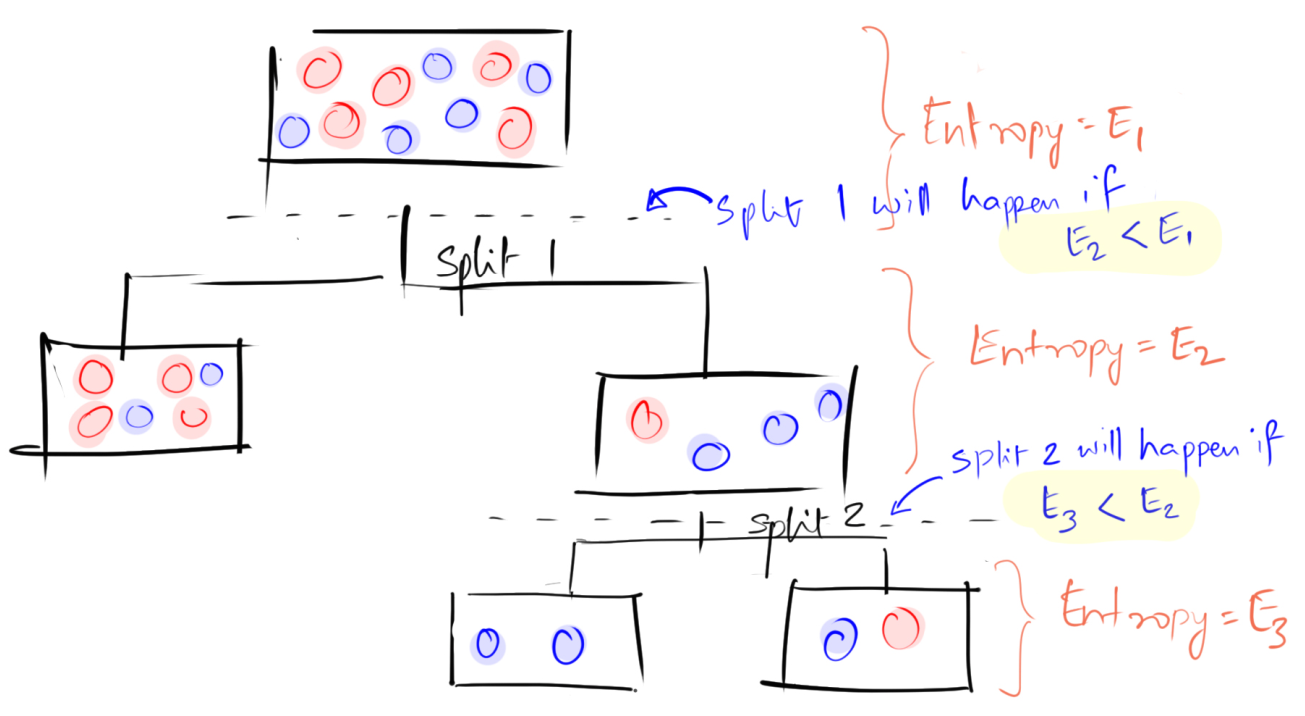 Entropy = E1
split 1 will happen if
E2 < E1
split 1
Entropy = E2
split 2 will happen if
E3 < E2
split 2
Entropy = E3